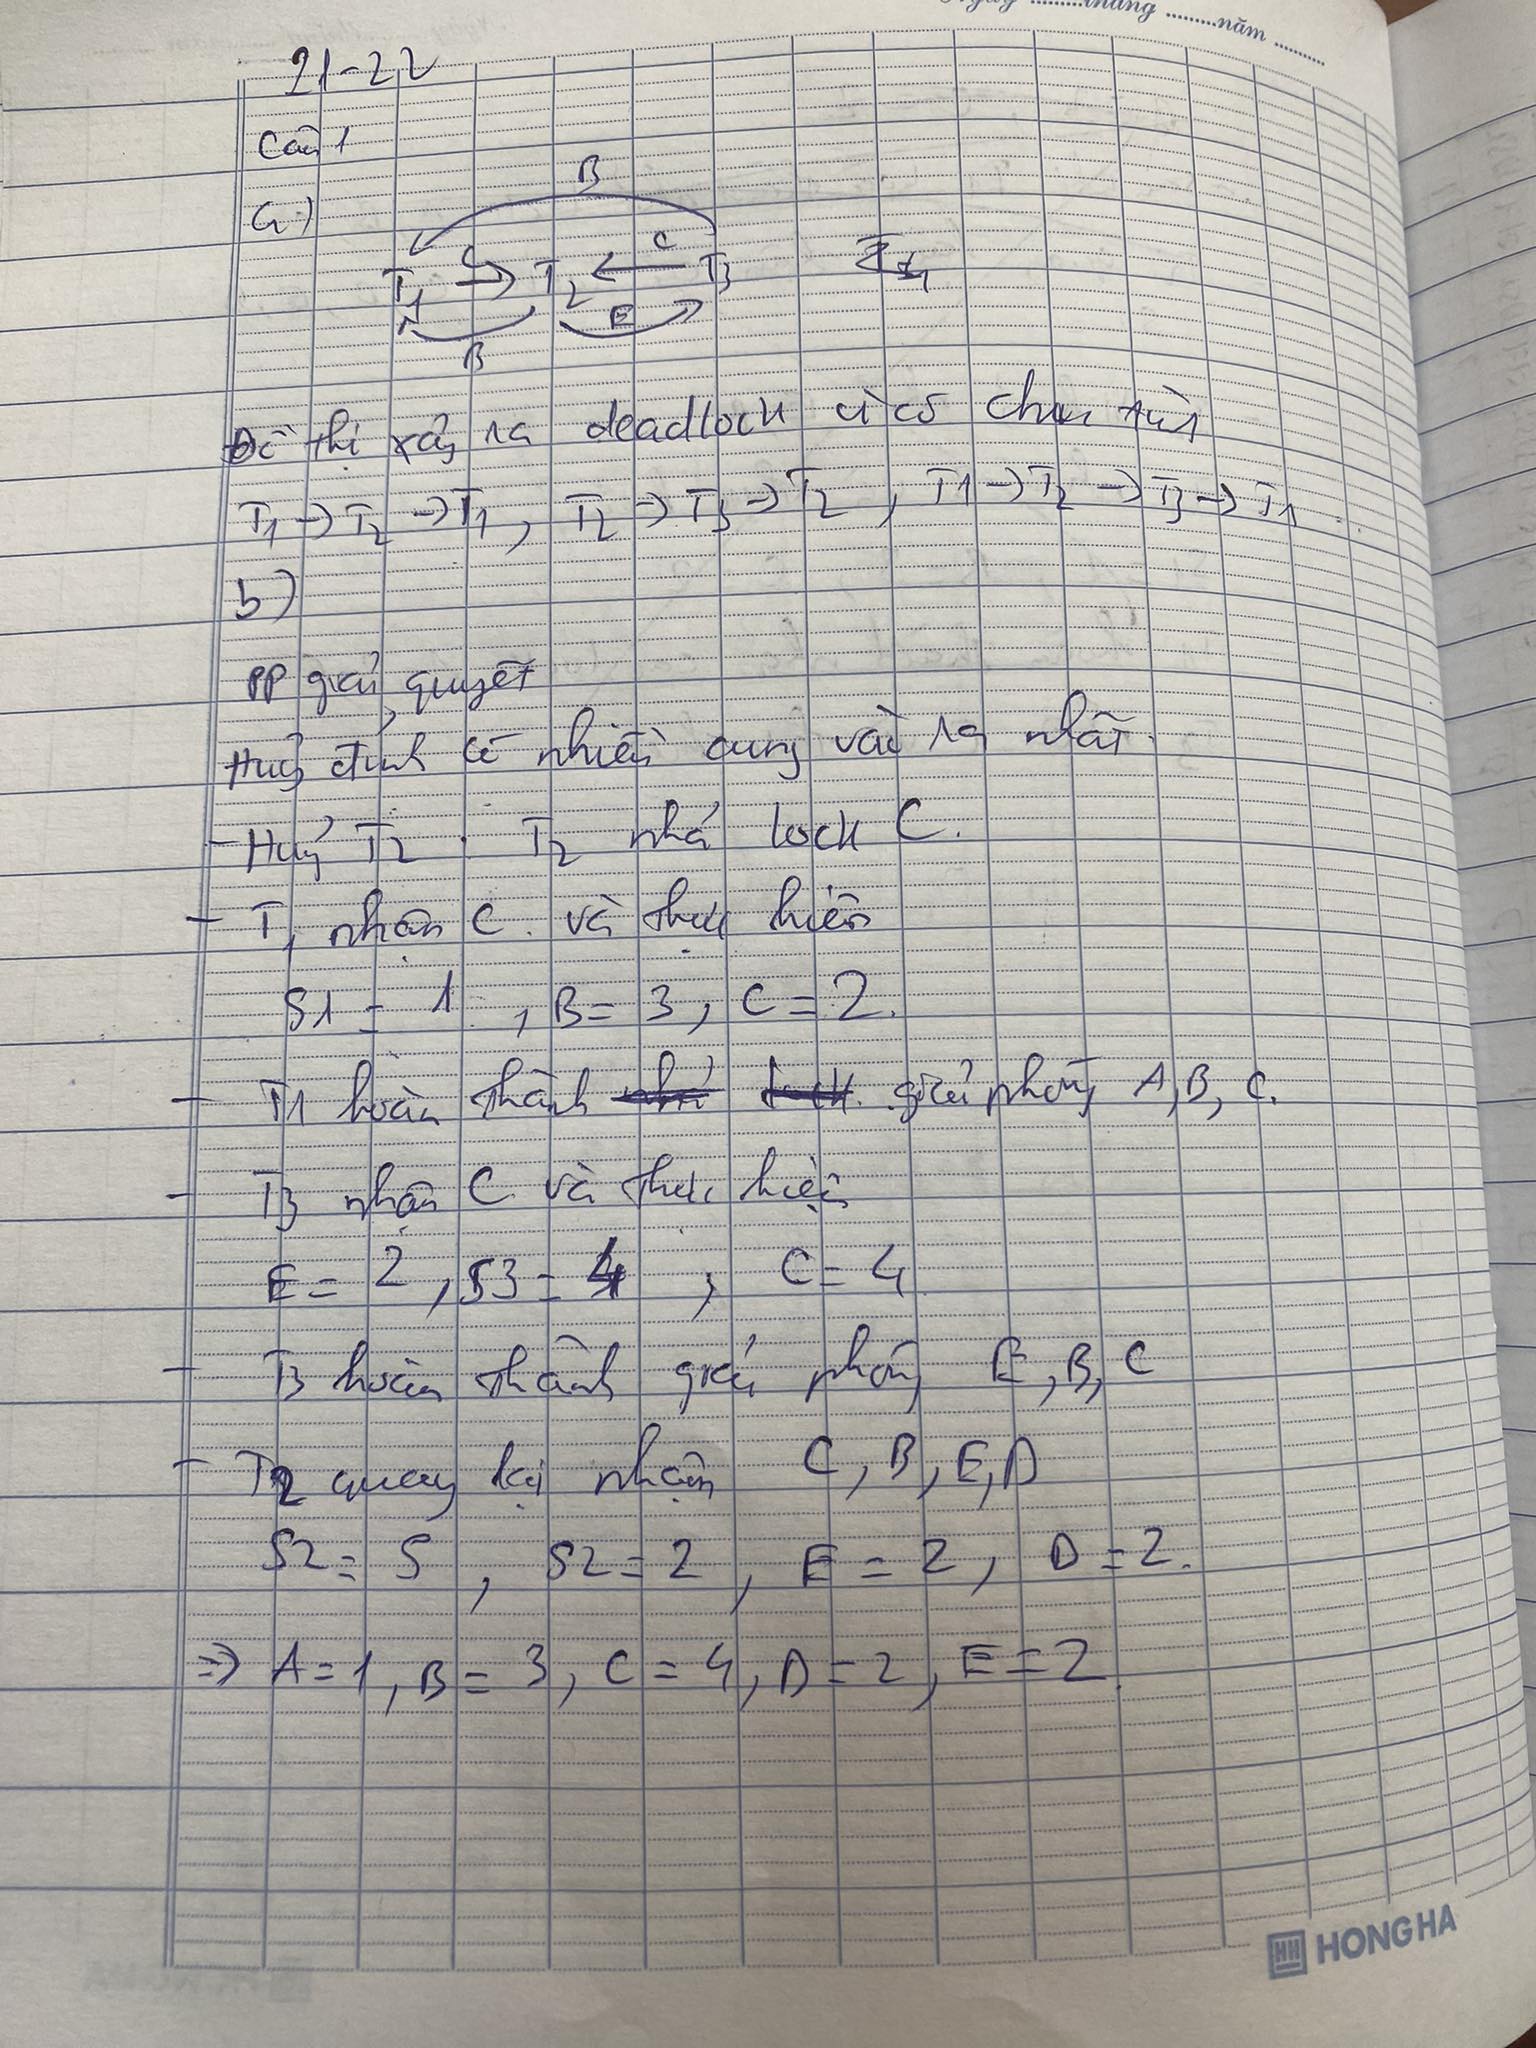 Ngày ........tháng ........năm ........
21-22
Câu 1
a)
B
T1 C T2 C T3
B E
Đồ thị xảy ra deadlock vì có chu trình
T1 → T2 → T1, T2 → T3 → T2, T1 → T2 → T3 → T1
b)
PP giải quyết
Huỷ đỉnh có nhiều cung vào ra nhất.
- Huỷ T2 : T2 nhả lock C.
- T1 nhận C. và thực hiện
S1 = 1 , B = 3, C = 2.
- T1 hoàn thành nhả lock giải phóng A, B, C.
- T3 nhận C và thực hiện
E = 2, S3 = 4 , C = 4
- T3 hoàn thành giải phóng E, B, C
- T2 quay lại nhận C, B, E, D
S2 = 5 , S2 = 2, E = 2, D = 2.
=> A = 1, B = 3, C = 4, D = 2, E = 2.
HH HONG HA